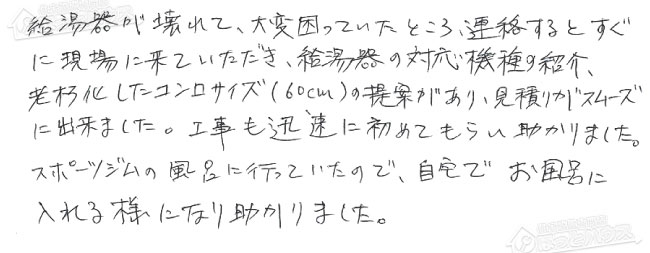 給湯器が壊れて、大変困っていたところ、連絡するとすぐ
に現場に来ていただき、給湯器の対応機種の紹介、
老朽化したコンロサイズ(60cm)の提案があり、見積りがスムーズ
に出来ました。工事も迅速に初めてもらい助かりました。
スポーツジムの風呂に行っていたので、自宅でお風呂に
入れる様になり助かりました。